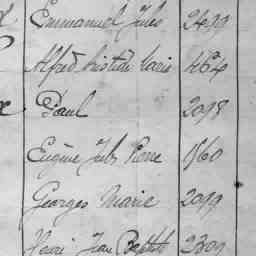 Emmanuel Jules 2499
Alfred Aristide Marie 464
Paul 2098
Eugène Jules Pierre 1560
Georges Marie 2099
Henri Jean Baptiste 2309